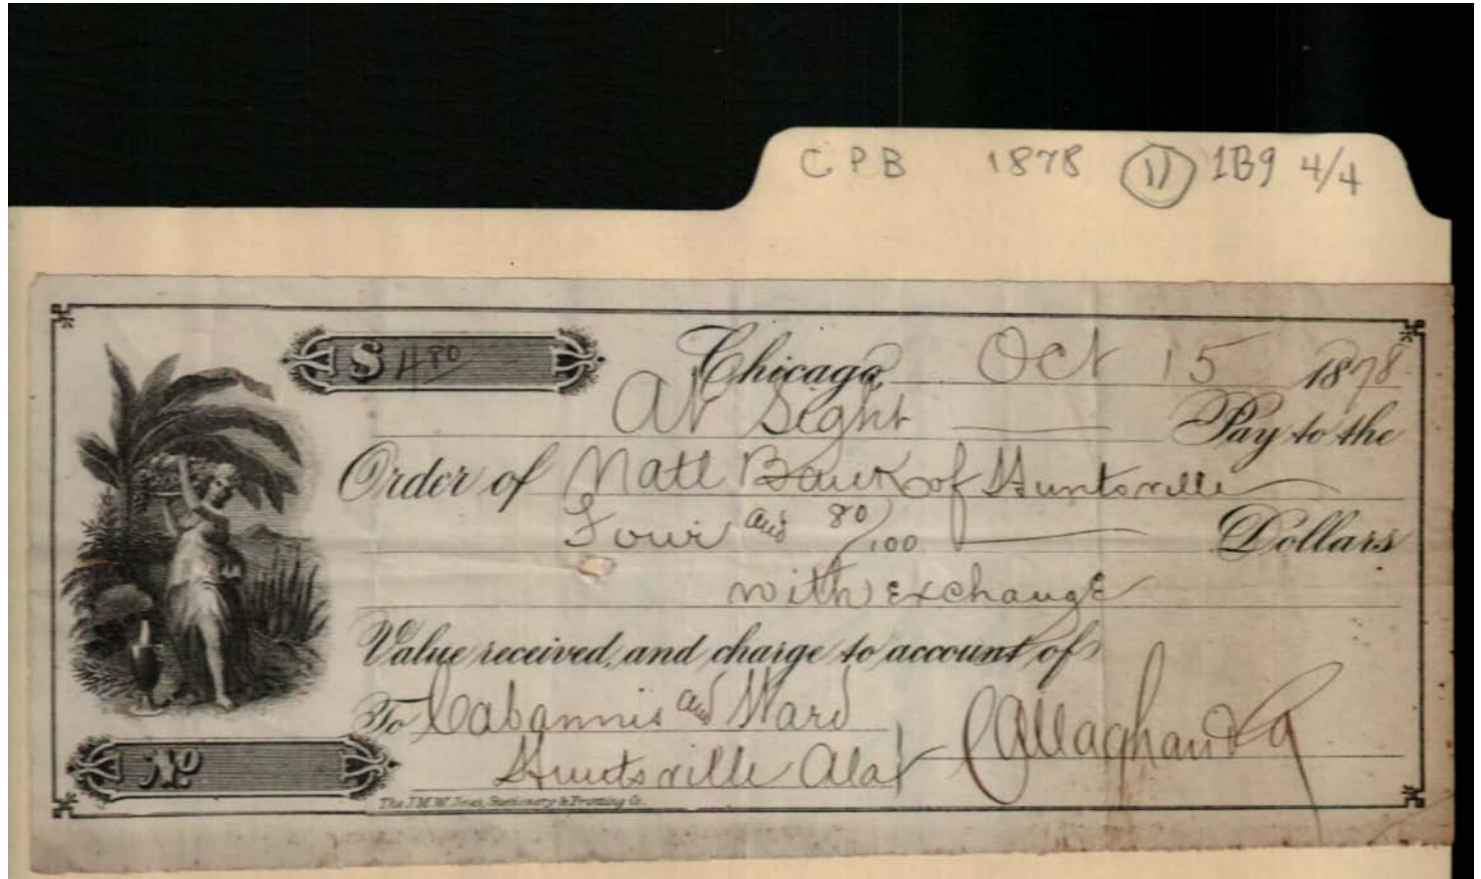 CPB 1878 (11) 1B9 4/4
$ 4 80
Chicago, Oct 15 1878
At Sight Pay to the
Order of Natl Bank of Huntsville
Four and 80/100 Dollars
with exchange
Value received, and charge to account of
To Cabannis and Ward
Huntsville Ala
Callaghan & Co
No
The J.M.W. Jones, Stationery & Printing Co.